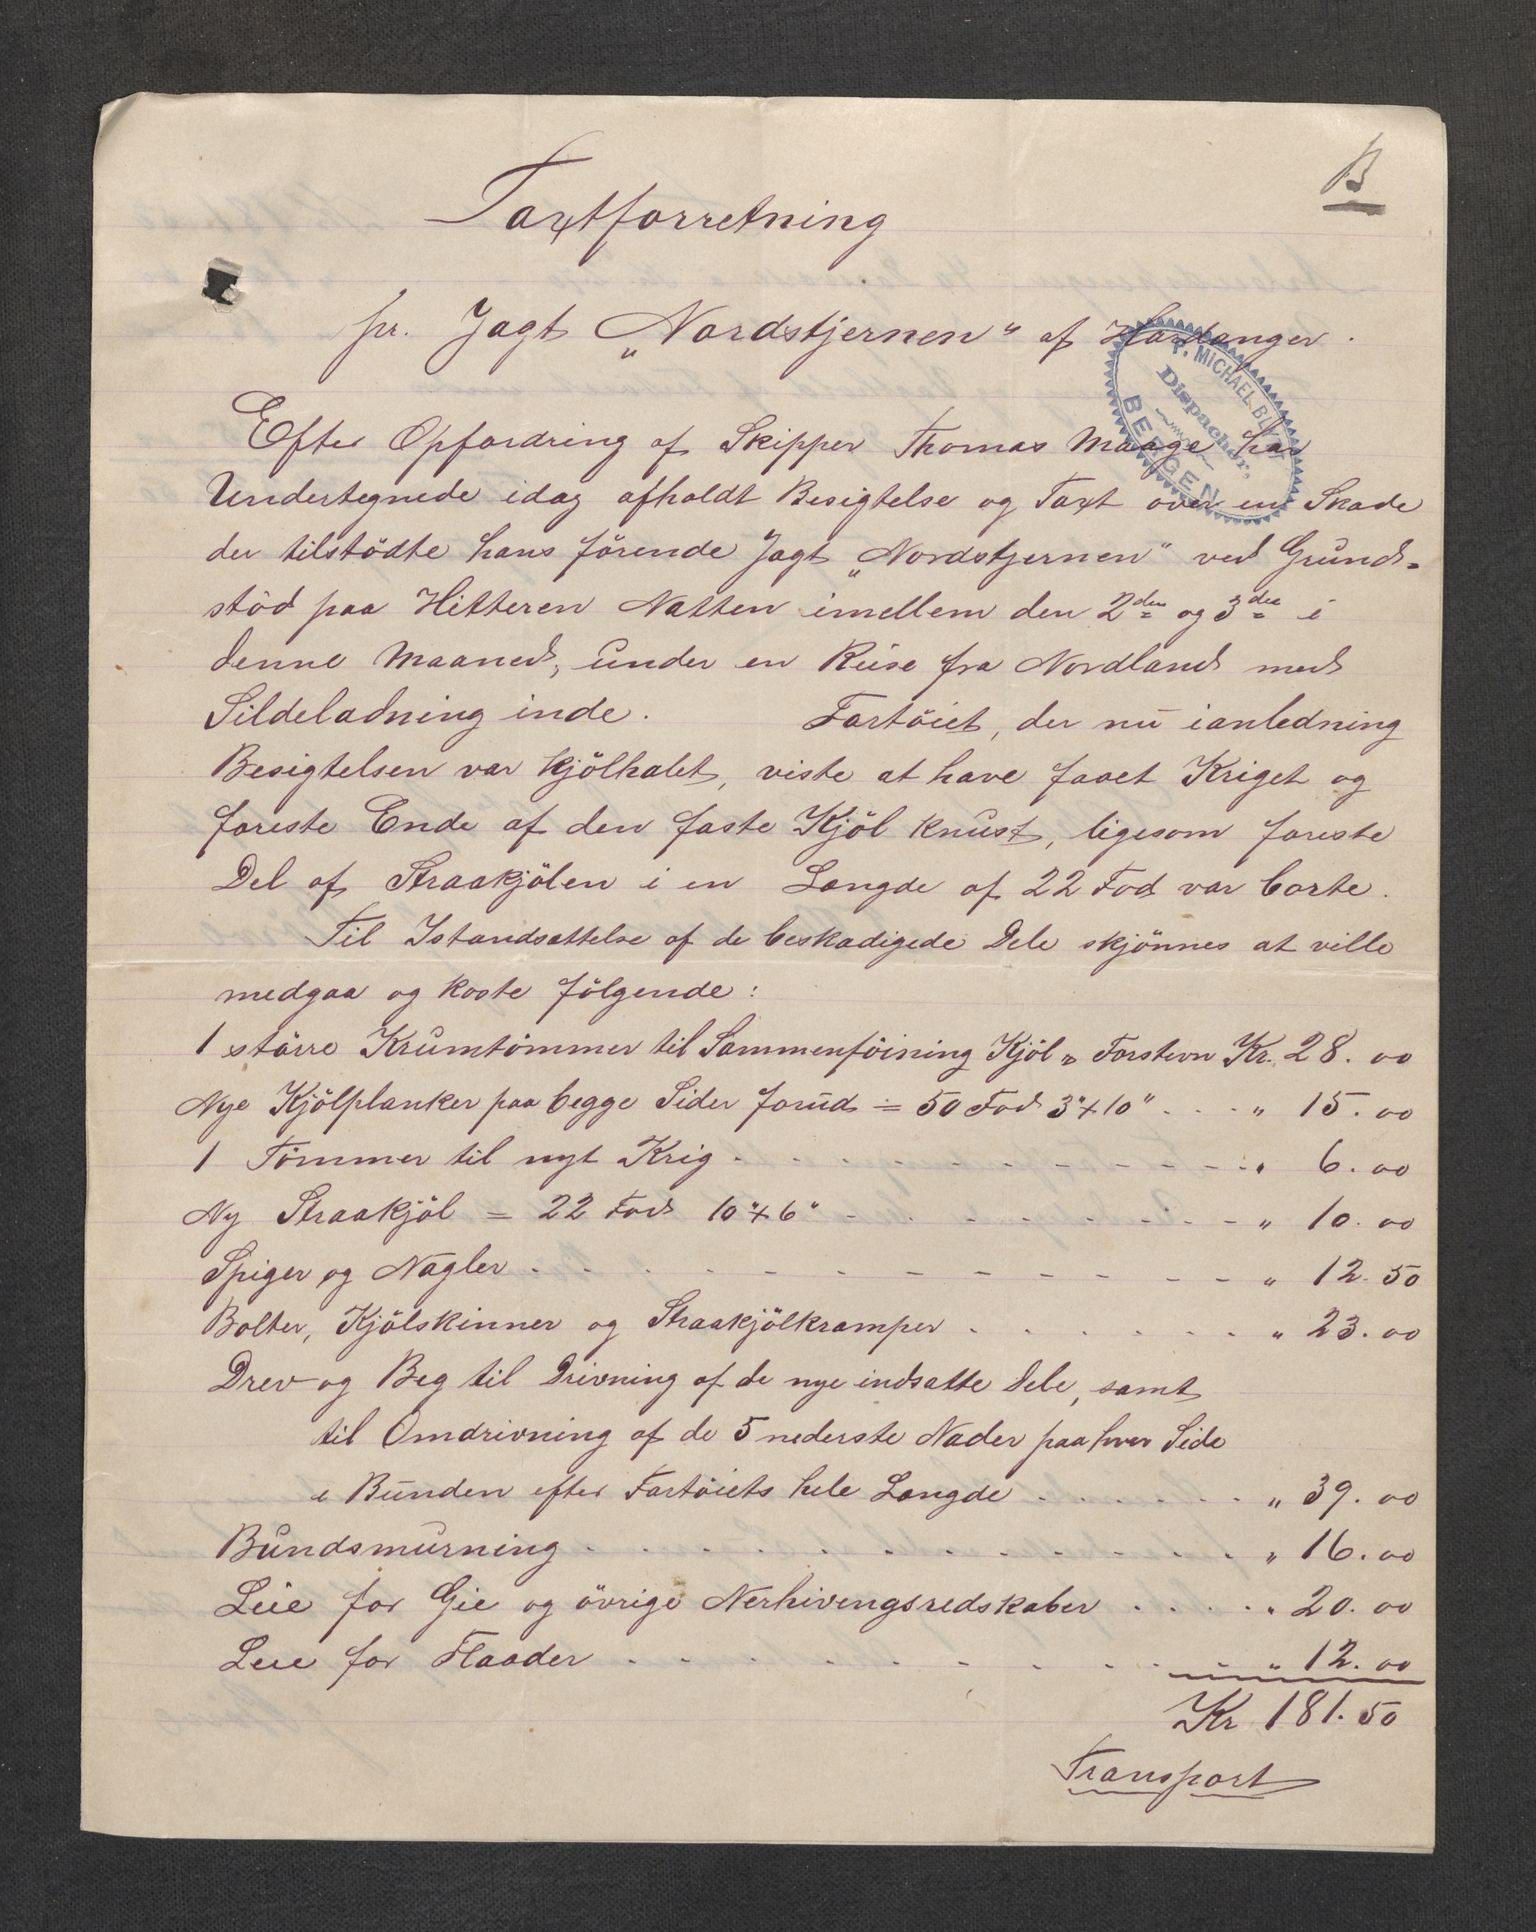 B
Taxtforretning
pr. Jagt „Nordstjernen" af Hardanger.
P. MICHAEL
Dispacheur,
BERGEN
Efter Opfordring af Skipper Thomas Maage har
Undertegnede idag afholdt Besigtelse og Taxt over en Skade
der tilstödte hans förende Jagt „Nordstjernen" ved Grund-
stöd paa Hitteren Natten imellem den 2den og 3die i
denne Maaned, under en Reise fra Nordland med
Sildeladning inde. Fartöiet, der nu ianledning
Besigtelsen var kjölhalet, viste at have faaet Kriget og
foreste Ende af den faste Kjöl knust, ligesom foreste
Del af Straakjölen i en Længde af 22 Fod var borte.
Til Istandsættelse af de beskadigede Dele skjönnes at ville
medgaa og koste fölgende:
1 större Krumtömmer til Sammenföining Kjöl & Forstevn Kr. 28.00
Nye Kjölplanker paa begge Sider forud = 50 Fod 3"x10" . . . " 15.00
1 Tömmer til nyt Krig . . . . . . . . . . " 6.00
Ny Straakjöl = 22 Fod 10"x6" . . . . . . . . " 10.00
Spiger og Nagler . . . . . . . . . . . . " 12.50
Bolter, Kjölskinner og Straakjölkramper . . . . . . " 23.00
Drev og Beg til Drivning af de nye indsatte Dele, samt
til Omdrivning af de 5 nederste Nader paa hver Side
i Bunden efter Fartöiets hele Længde . . . . . . " 39.00
Bundsmurning . . . . . . . . . . . . " 16.00
Leie for Gie og övrige Nerhivingsredskaber . . . . " 20.00
Leie for Flaader . . . . . . . . . . " 12.00
Kr 181.50
Transport